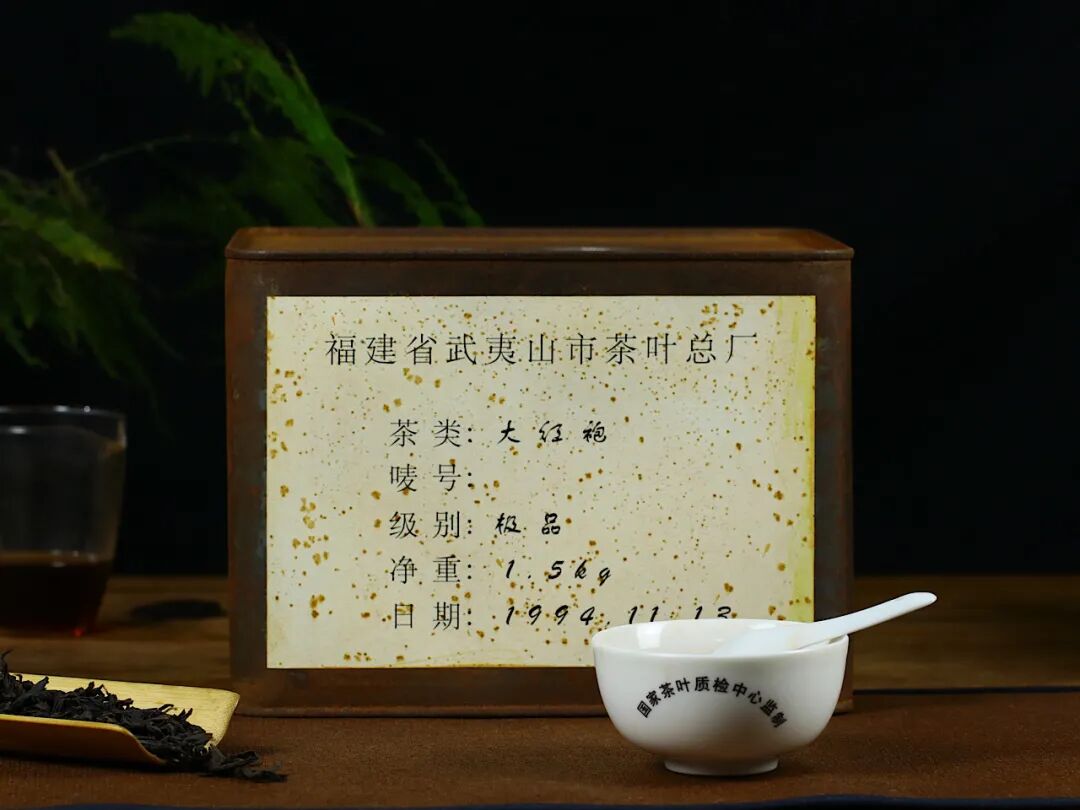 福建省武夷山市茶叶总厂
茶类: 大红袍
唛号:
级别: 极品
净重: 1.5kg
日期: 1994.11.13
国家茶叶质检中心监制